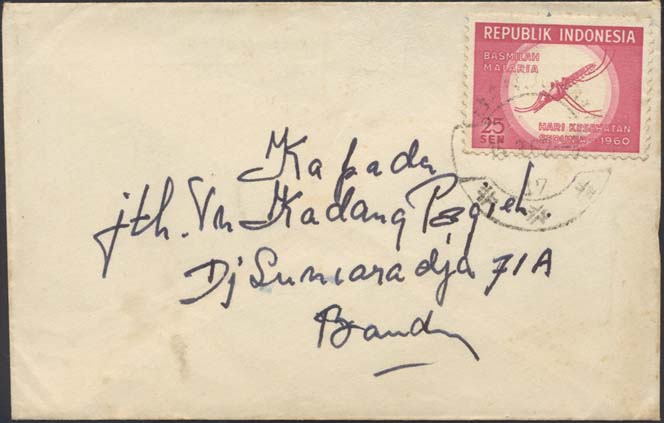 REPUBLIK INDONESIA
BASMILAH
MALARIA
25
SEN
HARI KESEHATAN
SEDUNIA 1960
17
Kapada
jth. Tn Kadang
Dj Suniaradja 71A